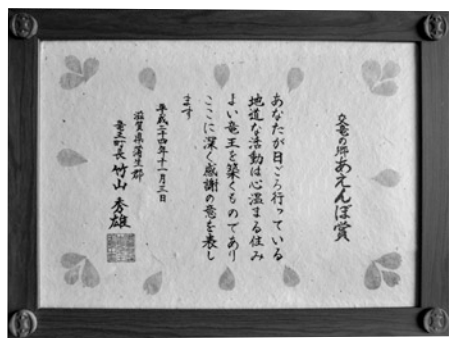 文竜の郷あえんぼ賞
あなたが日ごろ行っている
地道な活動は心温まる住み
よい竜王を築くものであり
ここに深く感謝の意を表し
ます
平成二十四年十一月三日
滋賀県蒲生郡
竜王町長 竹山秀雄